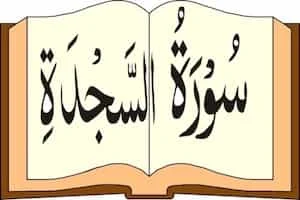 سُوْرَةُ السَّجْدَةِ